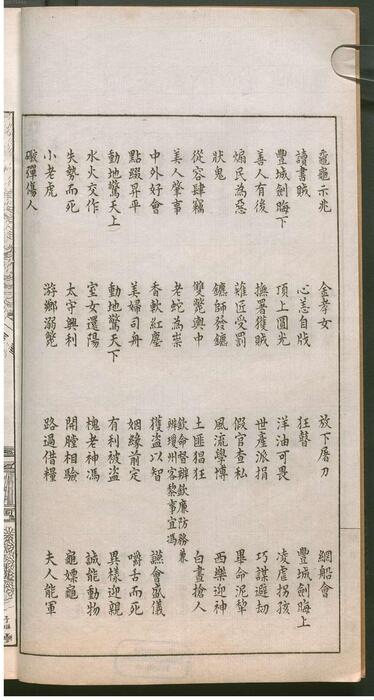 黿鼉示兆　金孝女　放下屠刀　網船會
讀書賊　心恙自戕　狂瞽　豐城劍晦上
豐城劍晦下　頂上圓光　洋油可畏　凌虐拐孩
善人有後　撫署獲賊　世產派捐　巧謀避劫
煽民為惡　雉匠受罰　假官查私　畢命泥犂
狀鬼　鑣師發鑣　風流學博　西樂迎神
從容肆竊　雙斃輿中　土匪猖狂　白晝搶人
美人肇事　老蛇為祟　欽命督辦欽廉防務兼
辦瓊州客黎事宜馮
中外好會　香軟紅塵　獲盜以智　讌會盛儀
點綴昇平　美婦司舟　姻緣前定　嚼舌而死
動地驚天上　動地驚天下　有利被盜　異樣迎親
水火交作　室女還陽　槐老神馮　誠能動物
失勢而死　太守興利　開膛相驗　龜嫖龜
小老虎　游鄉溺斃　路過借糧　夫人能軍
礮彈傷人